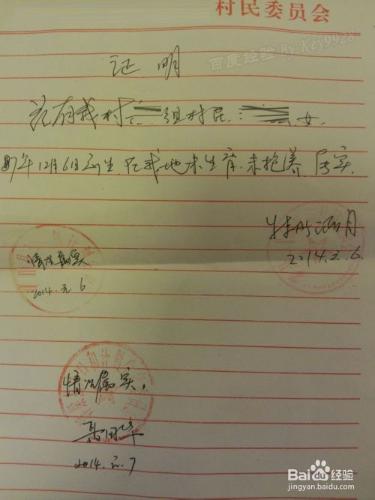 村民委员会
百度经验 By:Key9928
证明
兹有我村 组村民: 女
87年12月6日出生 在我地未生育.未抱养 属实.
特此证明
2014.2.6
情况属实
2014.元.6
情况属实.
2014.元.7
Baidu 经验
jingyan.baidu.com